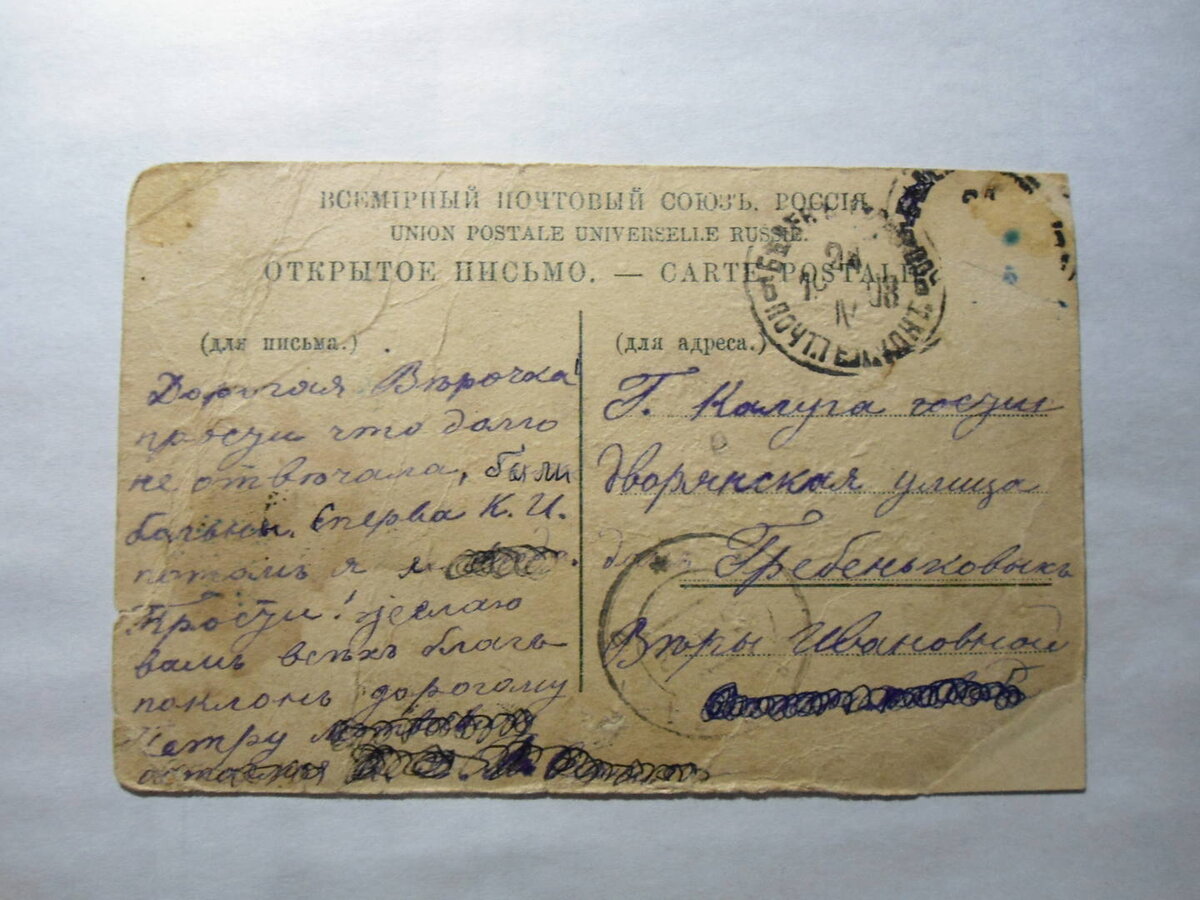 ВСЕМІРНЫЙ ПОЧТОВЫЙ СОЮЗЪ. РОССІЯ.
UNION POSTALE UNIVERSELLE RUSSIE.
ОТКРЫТОЕ ПИСЬМО. — CARTE POSTALE
(для письма.)
Дорогая Вѣрочка!
прости что долго
не отвѣчала, были
больны. Сперва К. И.
потомъ я и
Прости! желаю
вамъ всѣхъ благъ
поклонъ дорогому
Петру
остаемся
(для адреса.)
Г. Калуга
Дворянская улица
Гребеньковыхъ
Вѣры Ивановной
24
IV 08